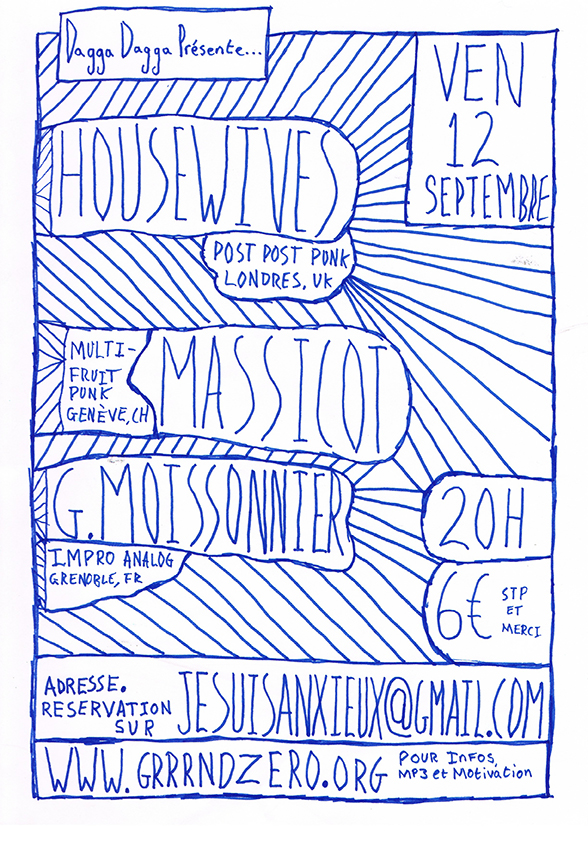 Dagga Dagga Présente...
VEN
12
SEPTEMBRE
HOUSEWIVES
POST POST PUNK
LONDRES, UK
MULTI-
FRUIT
PUNK
GENÈVE, CH
MASSICOT
G. MOISSONNIER
IMPRO ANALOG
GRENOBLE, FR
20H
6€
STP
ET
MERCI
ADRESSE.
RESERVATION
SUR
JESUISANXIEUX@GMAIL.COM
WWW.GRRRNDZERO.ORG
POUR INFOS,
MP3 et Motivation